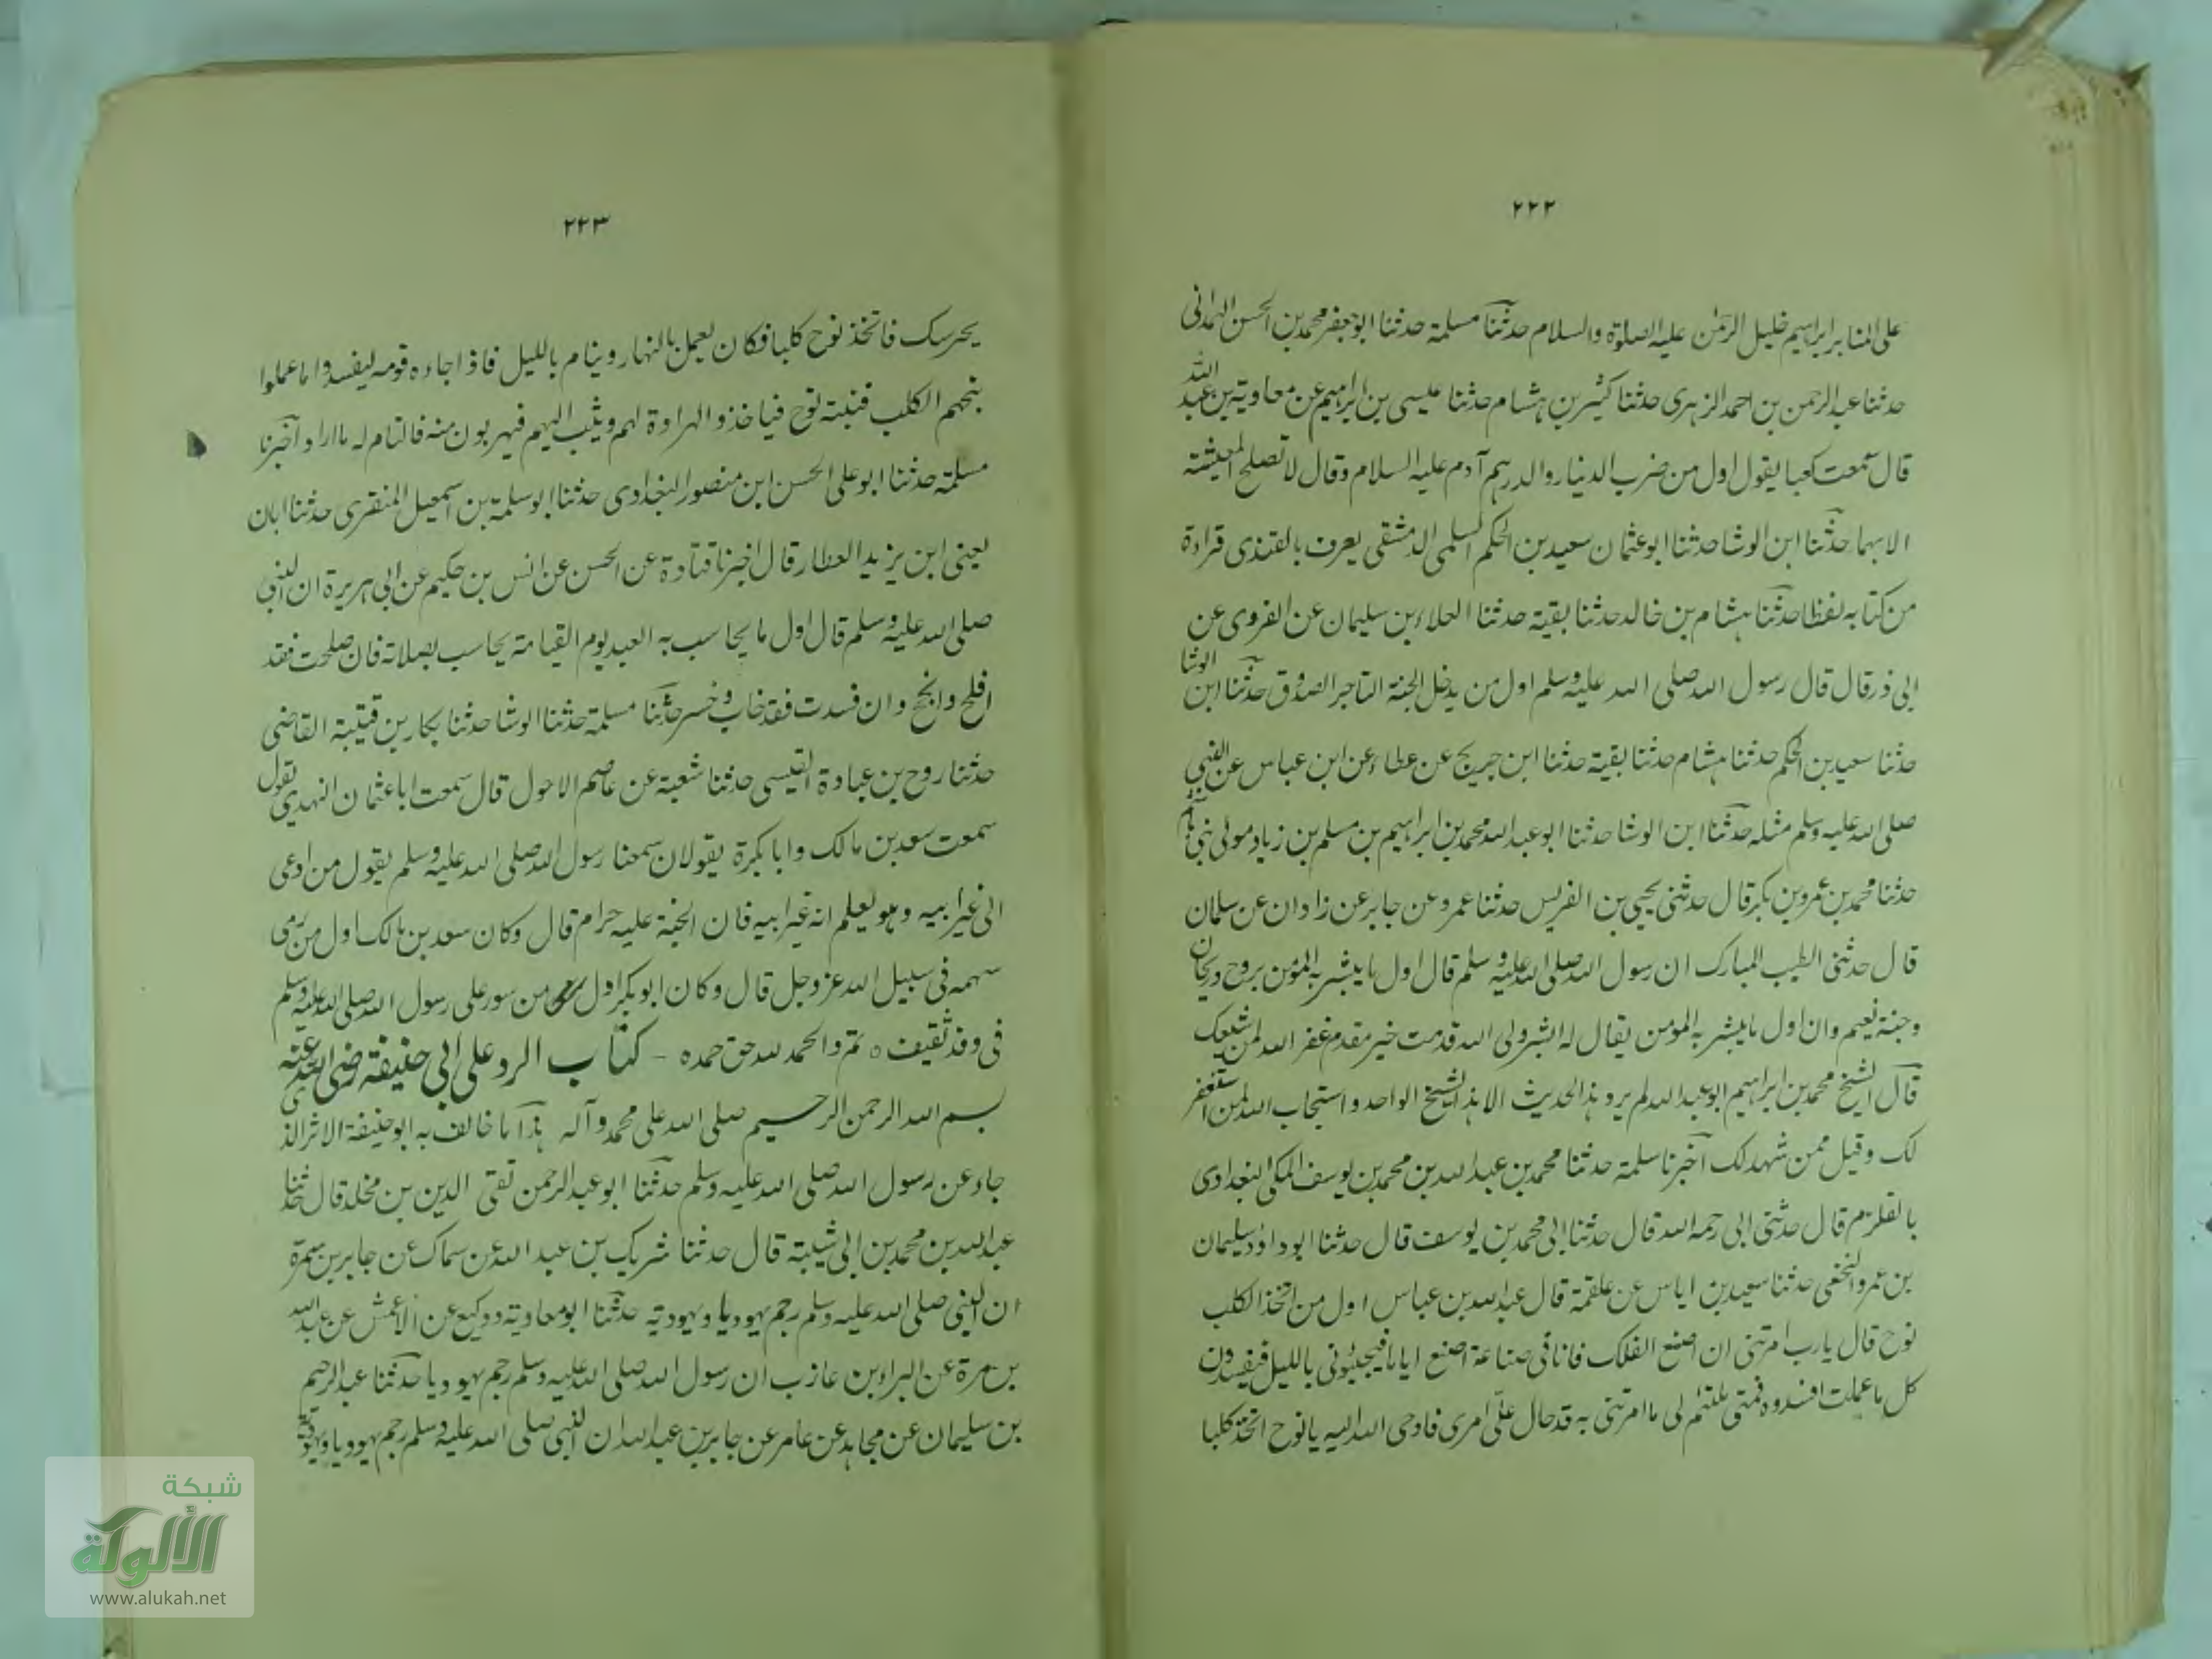 ٢٢٢
على المنابر ابراهيم خليل الرحمٰن عليه الصلوة والسلام حدثنا مسلمة حدثنا ابو جعفر محمد بن الحسن الهمدانى
حدثنا عبد الرحمن بن احمد الزهرى حدثنا كثير بن هشام حدثنا عيسى بن ابراهيم عن معاوية بن عبد الله
قال سمعت كعبا يقول اول من ضرب الدينار والدرهم آدم عليه السلام وقال لا تصلح المعيشة
الا بهما حدثنا ابن الوشا حدثنا ابو عثمان سعيد بن الحكم السلمى الدمشقى يعرف بالقندى قراءة
من كتابه لفظا حدثنا هشام بن خالد حدثنا بقية حدثنا العلاء بن سليمان عن الفروى عن
ابى ذر قال قال رسول الله صلى الله عليه وسلم اول من يدخل الجنة التاجر الصدوق حدثنا ابن الوشا
حدثنا سعيد بن الحكم حدثنا هشام حدثنا بقية حدثنا ابن جريج عن عطاء عن ابن عباس عن النبى
صلى الله عليه وسلم مثله حدثنا ابن الوشا حدثنا ابو عبد الله محمد بن ابراهيم بن مسلم بن زياد مولى بنى هاشم
حدثنا محمد بن عمرو بن بكر قال حدثنى يحيى بن الفريس حدثنا عمرو عن جابر عن زاذان عن سلمان
قال حدثنى الطيب المبارك ان رسول الله صلى الله عليه وسلم قال اول ما يبشر به المؤمن بروح وريحان
وجنة نعيم وان اول ما يبشر به المؤمن يقال له ابشر ولى الله قدمت خير مقدم غفر الله لمن شيعك
قال الشيخ محمد بن ابراهيم ابو عبد الله لم يرو هذا الحديث الا هذا الشيخ الواحد واستجاب الله لمن استغفر
لك وقبل ممن شهد لك آخبرنا سلمة حدثنا محمد بن عبد الله بن محمد بن يوسف المكى البغدادى
بالقلزم قال حدثنى ابى رحمه الله قال حدثنا ابى محمد بن يوسف قال حدثنا ابو داؤد سليمان
بن عمرو النخعى حدثنا سعيد بن اياس عن علقمة قال عبد الله بن عباس اول من اتخذ الكلب
نوح قال يارب امرتنى ان اصنع الفلك فانا فى صناعة اصنع اياما فيجيئونى بالليل فيفسدون
كل ما عملت افسدوه فمتى يلتئم لى ما امرتنى به قد حال علىّ امرى فاوحى الله اليه يا نوح اتخذ كلبا
٢٢٣
يحرسك فاتخذ نوح كلبا فكان يعمل بالنهار وينام بالليل فاذا جاءه قومه ليفسدوا ما عملوا
ينبحهم الكلب فينبه نوح فياخذ والهراوة لهم ويثب اليهم فيهربون منه فالتام له ما اراد آخبرنا
مسلمة حدثنا ابو على الحسن ابن منصور البغدادى حدثنا ابو سلمة بن اسمعيل المنقرى حدثنا ابان
يعنى ابن يزيد العطار قال اخبرنا قتادة عن الحسن عن انس بن حكيم عن ابى هريرة ان النبى
صلى الله عليه وسلم قال اول ما يحاسب به العبد يوم القيامة يحاسب بصلاته فان صلحت فقد
افلح وانجح وان فسدت فقد خاب وخسر حدثنا مسلمة حدثنا الوشا حدثنا بكار بن قتيبة القاضى
حدثنا روح بن عبادة القيسى حدثنا شعبة عن عاصم الاحول قال سمعت ابا عثمان النهدى يقول
سمعت سعد بن مالك وابا بكرة يقولان سمعنا رسول الله صلى الله عليه وسلم يقول من ادعى
الى غير ابيه وهو يعلم انه غير ابيه فان الجنة عليه حرام قال وكان سعد بن مالك اول من رمى
سهمه فى سبيل الله عز وجل قال وكان ابو بكر اول من سور على رسول الله صلى الله عليه وسلم
فى وفد ثقيف ٥ تم والحمد لله حق حمده - كتاب الرد على ابى حنيفة رضى الله عنه
بسم الله الرحمن الرحيم صلى الله على محمد وآله هذا ما خالف به ابو حنيفة الاثر الذى
جاء عن رسول الله صلى الله عليه وسلم حدثنا ابو عبد الرحمن تقى الدين بن مخلد قال حدثنا
عبد الله بن محمد بن ابى شيبة قال حدثنا شريك بن عبد الله عن سماك عن جابر بن سمرة
ان النبى صلى الله عليه وسلم رجم يهوديا ويهودية حدثنا ابو معاوية ووكيع عن الاعمش عن عبد الله
بن مرة عن البراء بن عازب ان رسول الله صلى الله عليه وسلم رجم يهوديا حدثنا عبد الرحيم
بن سليمان عن مجاهد عن عامر عن جابر بن عبد الله ان النبى صلى الله عليه وسلم رجم يهوديا ويهودية
شبكة
الألوكة
www.alukah.net